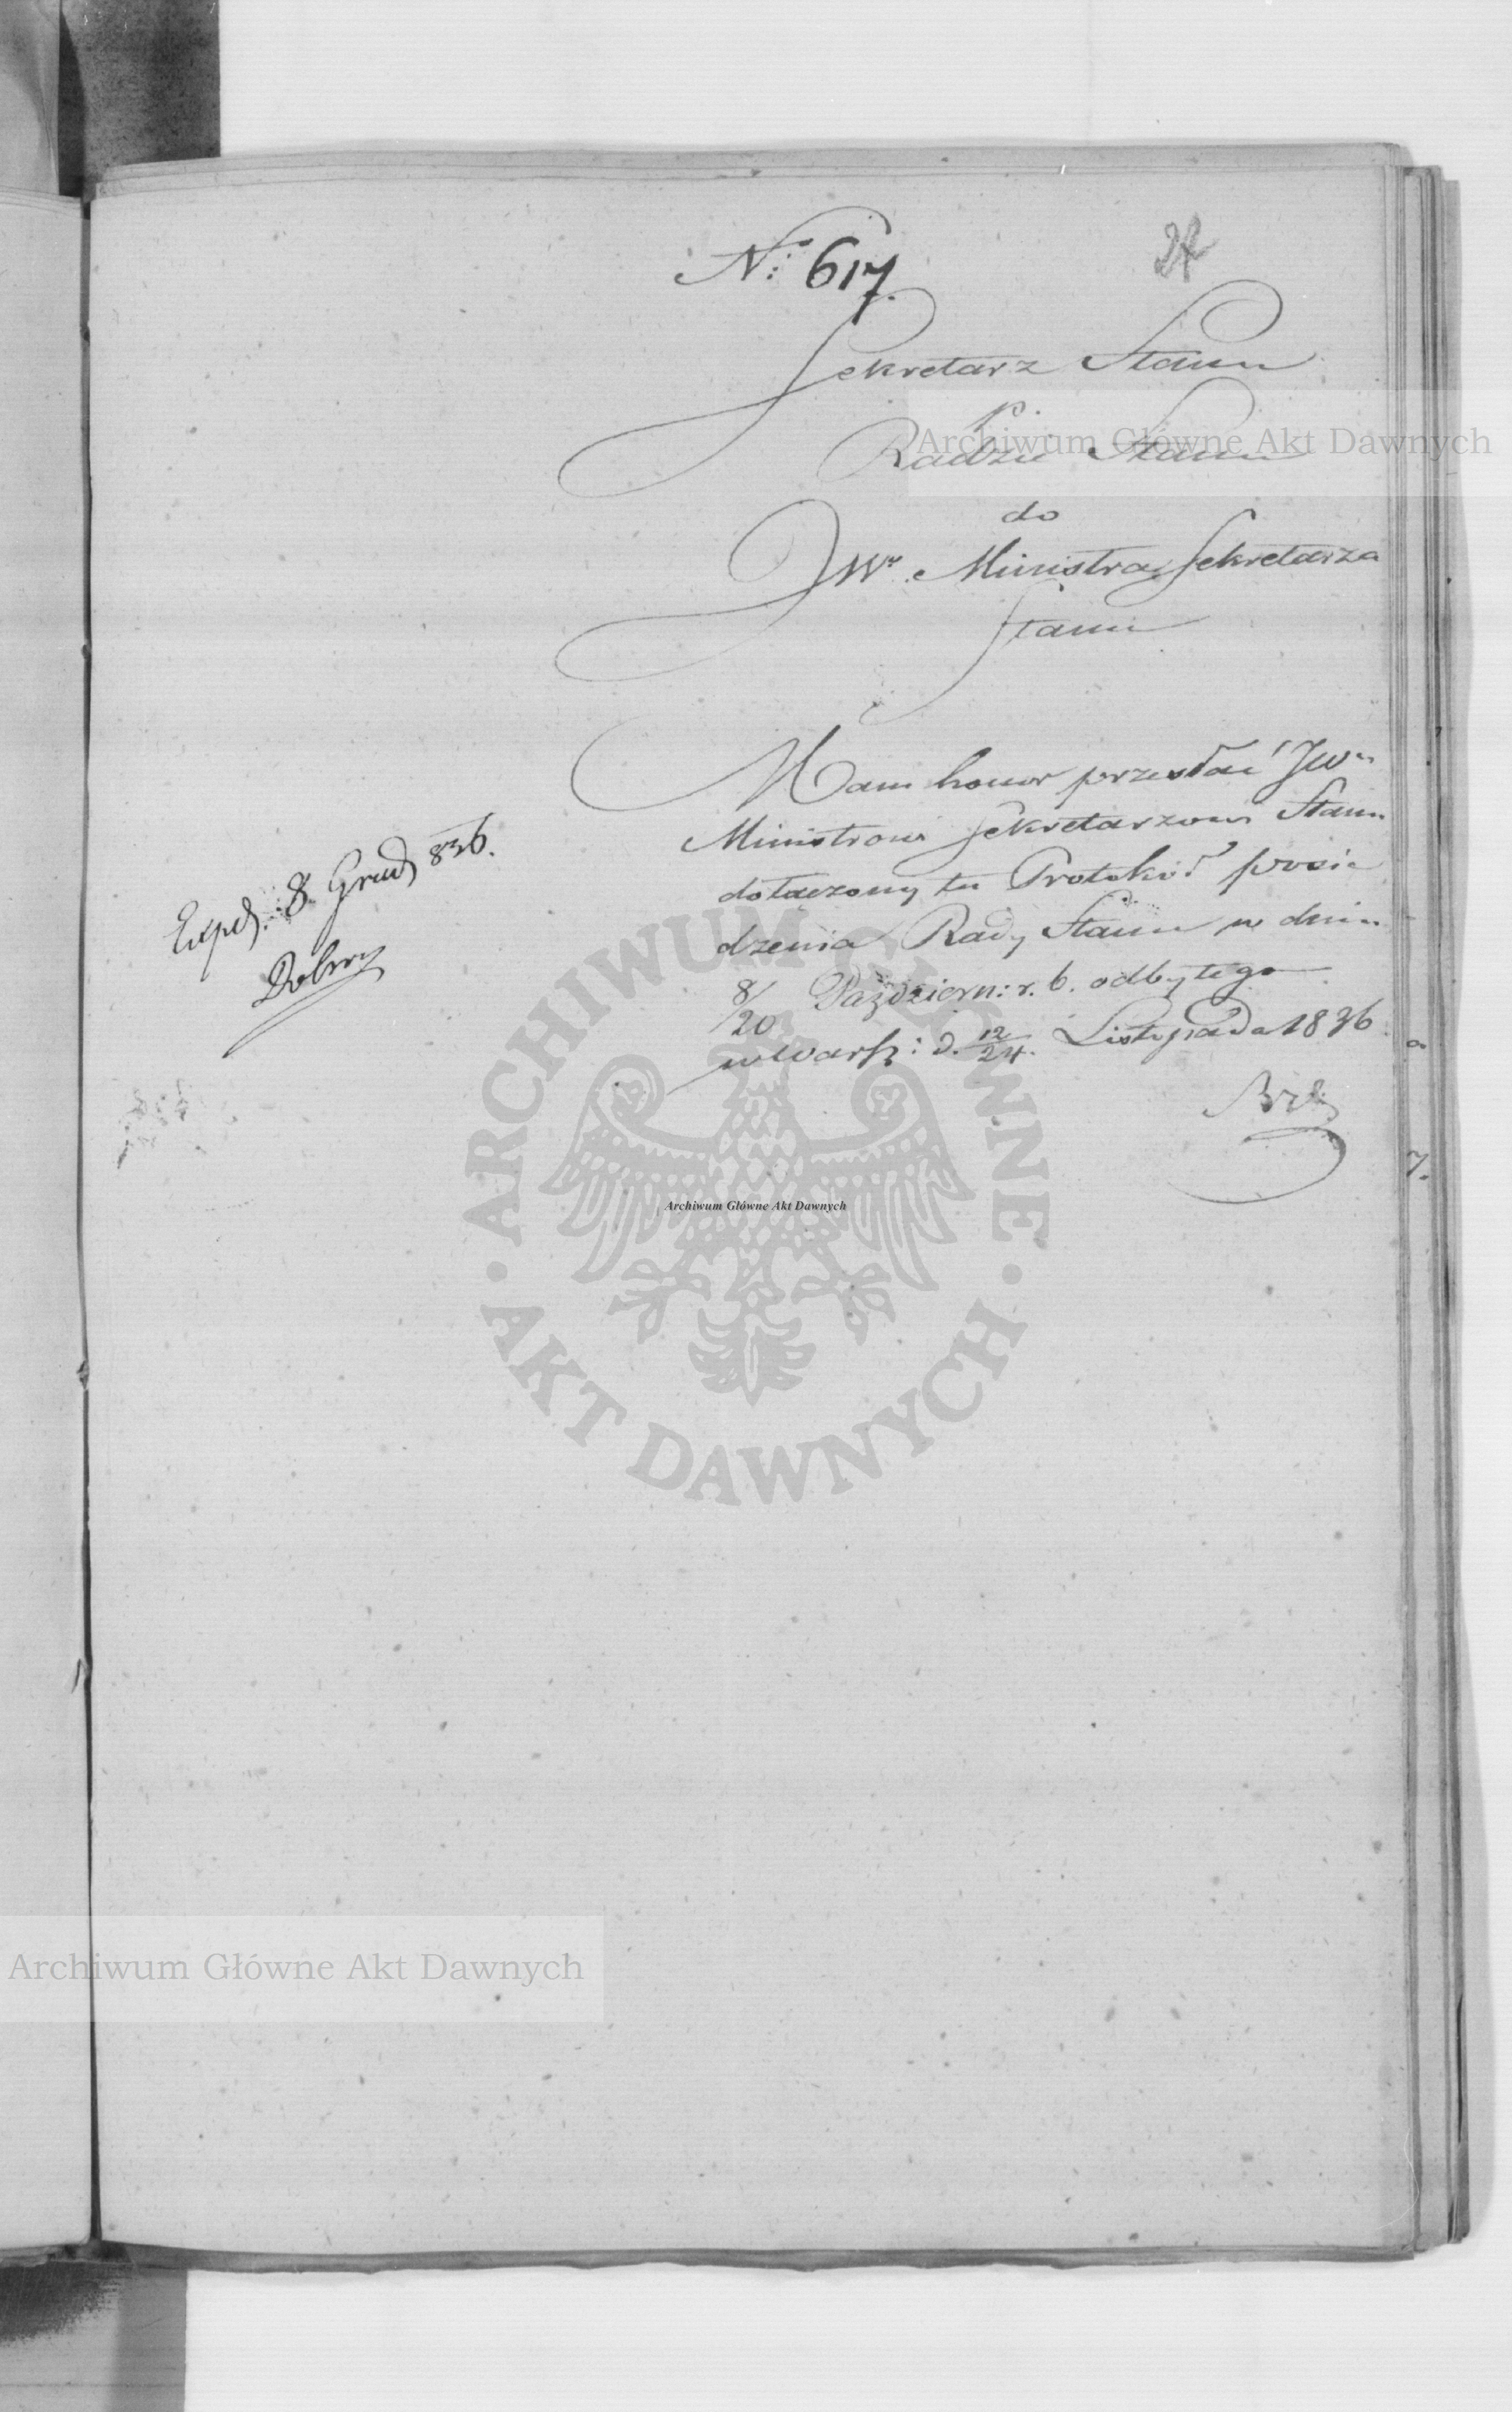 No 617.
Sekretarz Stanu
p.
Radzie Stanu
do
JWo Ministra Sekretarza
Stanu
Mam honor przesłać JWu
Ministrowi Sekretarzowi Stanu
dołączony tu Protokół posie
dzenia Rady Stanu w dniu
8/20 Październ: r. b. odbytego
w Warsz: d. 12/24. Listopada 1836
Exped: 8. Grud 836.
Archiwum Główne Akt Dawnych
ARCHIWUM GŁÓWNE · AKT DAWNYCH ·
Archiwum Główne Akt Dawnych
Archiwum Główne Akt Dawnych